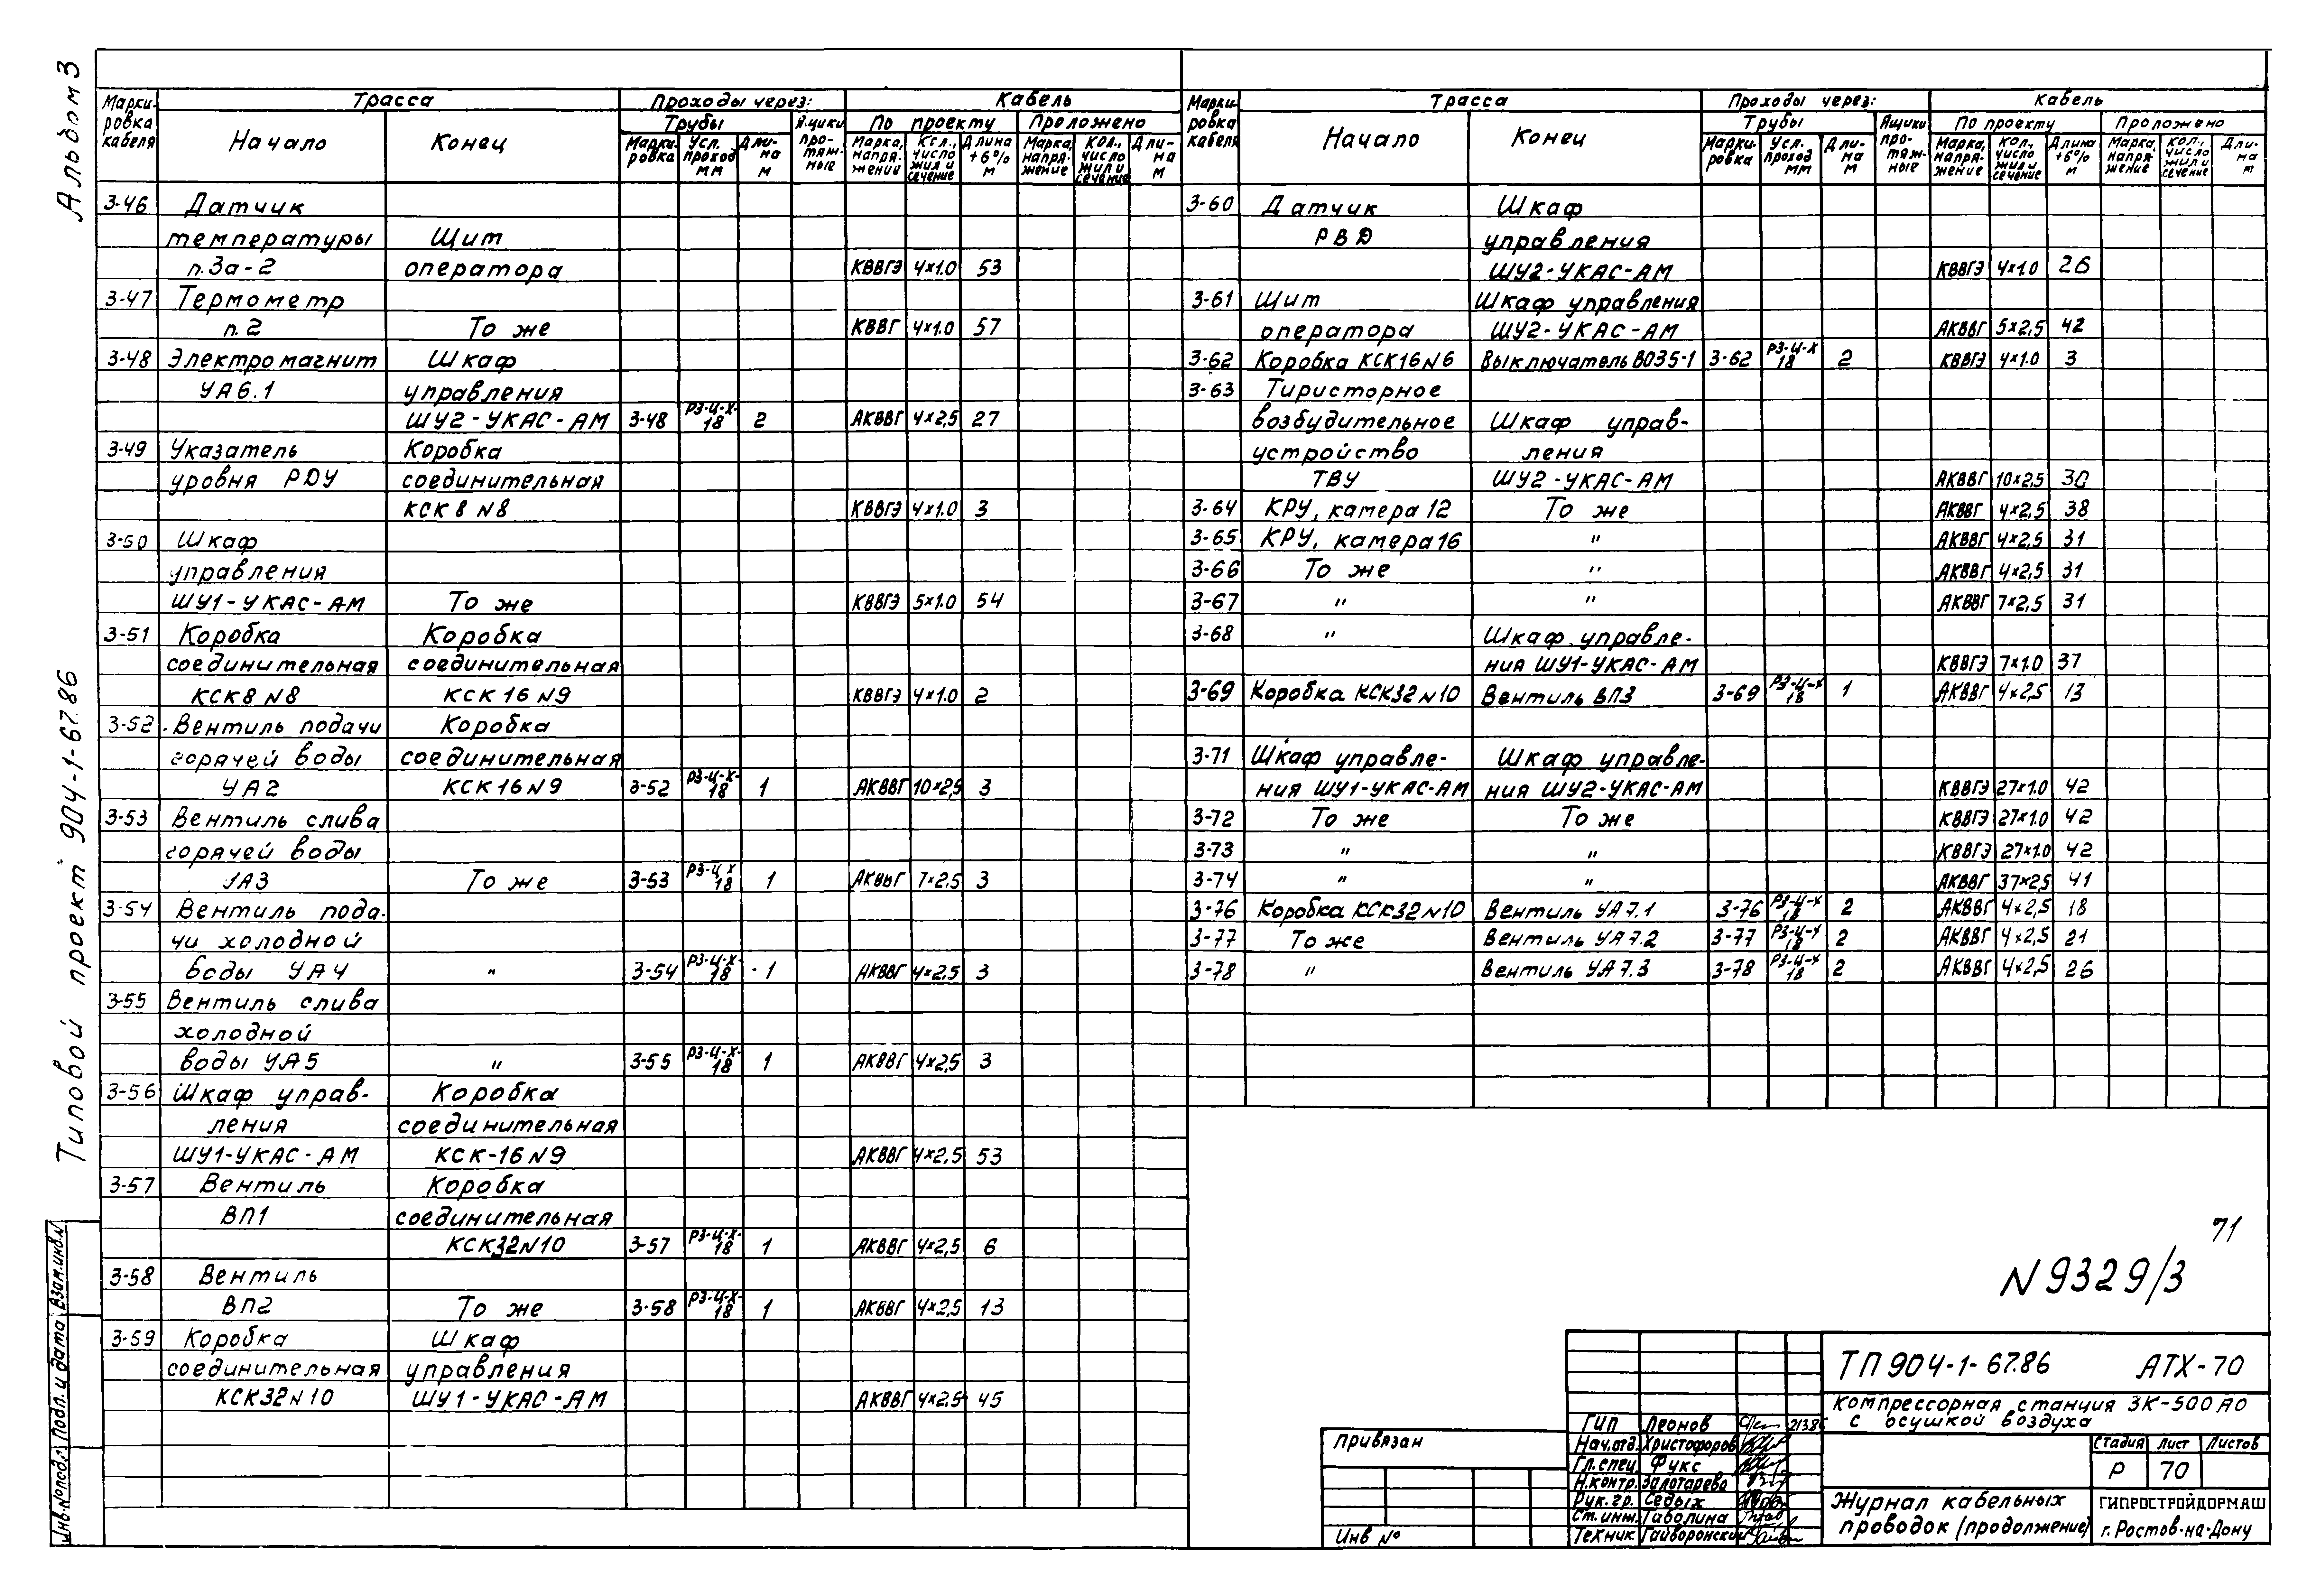 Альбом 3
Типовой проект 904-1-67.86
Инв.№подл. Подл. и дата Взам.инв.№
Марки-ровка кабеля | Трасса | Проходы через: | Кабель
Начало | Конец | Трубы | Ящики про-тяж-ные | По проекту | Проложено
Марки-ровка | Усл. проход мм | Дли-на м | Марка, напря-жение | Кол., число жил и сечение | Длина +6% м | Марка, напря-жение | Кол., число жил и сечение | Дли-на м
3-46 Датчик
температуры Щит
п.3а-2 оператора КВВГЭ 4×1.0 53
3-47 Термометр
п.2 То же КВВГ 4×1.0 57
3-48 Электромагнит Шкаф
УА6.1 управления
ШУ2-УКАС-АМ 3-48 РЗ-Ц-Х-18 2 АКВВГ 4×2,5 27
3-49 Указатель Коробка
уровня РДУ соединительная
КСК8 №8 КВВГЭ 4×1.0 3
3-50 Шкаф
управления
ШУ1-УКАС-АМ То же КВВГЭ 5×1.0 54
3-51 Коробка Коробка
соединительная соединительная
КСК8 №8 КСК16 №9 КВВГЭ 4×1.0 2
3-52 Вентиль подачи Коробка
горячей воды соединительная
УА2 КСК16№9 3-52 РЗ-Ц-Х-18 1 АКВВГ 10×2,5 3
3-53 Вентиль слива
горячей воды
УА3 То же 3-53 РЗ-Ц Х 18 1 АКВВГ 7×2,5 3
3-54 Вентиль пода-
чи холодной
воды УА4 " 3-54 РЗ-Ц-Х-18 1 АКВВГ 4×2,5 3
3-55 Вентиль слива
холодной
воды УА5 " 3-55 РЗ-Ц-Х-18 1 АКВВГ 4×2,5 3
3-56 Шкаф управ- Коробка
ления соединительная
ШУ1-УКАС-АМ КСК-16№9 АКВВГ 4×2,5 53
3-57 Вентиль Коробка
ВП1 соединительная
КСК32№10 3-57 РЗ-Ц-Х-18 1 АКВВГ 4×2,5 6
3-58 Вентиль
ВП2 То же 3-58 РЗ-Ц-Х-18 1 АКВВГ 4×2,5 13
3-59 Коробка Шкаф
соединительная управления
КСК32№10 ШУ1-УКАС-АМ АКВВГ 4×2,5 45
Марки-ровка кабеля | Трасса | Проходы через: | Кабель
Начало | Конец | Трубы | Ящики про-тяж-ные | По проекту | Проложено
Марки-ровка | Усл. проход мм | Дли-на м | Марка, напря-жение | Кол., число жил и сечение | Длина +6% м | Марка, напря-жение | Кол., число жил и сечение | Дли-на м
3-60 Датчик Шкаф
РВД управления
ШУ2-УКАС-АМ КВВГЭ 4×1.0 26
3-61 Щит Шкаф управления
оператора ШУ2-УКАС-АМ АКВВГ 5×2,5 42
3-62 Коробка КСК16№6 Выключатель ВО35-1 3-62 РЗ-Ц-Х 18 2 КВВГЭ 4×1.0 3
3-63 Тиристорное
возбудительное Шкаф управ-
устройство ления
ТВУ ШУ2-УКАС-АМ АКВВГ 10×2,5 30
3-64 КРУ, камера 12 То же АКВВГ 4×2,5 38
3-65 КРУ, камера 16 " АКВВГ 4×2,5 31
3-66 То же " АКВВГ 4×2,5 31
3-67 " " АКВВГ 7×2,5 31
3-68 " Шкаф управле-
ния ШУ1-УКАС-АМ КВВГЭ 7×1.0 37
3-69 Коробка КСК32№10 Вентиль ВП3 3-69 РЗ-Ц-Х 18 1 АКВВГ 4×2,5 13
3-71 Шкаф управле- Шкаф управле-
ния ШУ1-УКАС-АМ ния ШУ2-УКАС-АМ КВВГЭ 27×1.0 42
3-72 То же То же КВВГЭ 27×1.0 42
3-73 " " КВВГЭ 27×1.0 42
3-74 " " АКВВГ 37×2,5 41
3-76 Коробка КСК32№10 Вентиль УА7.1 3-76 РЗ-Ц-Х 18 2 АКВВГ 4×2,5 18
3-77 То же Вентиль УА7.2 3-77 РЗ-Ц-Х 18 2 АКВВГ 4×2,5 21
3-78 " Вентиль УА7.3 3-78 РЗ-Ц-Х 18 2 АКВВГ 4×2,5 26
71
№9329/3
ТП 904-1-67.86 АТХ-70
Компрессорная станция 3К-500АО
с осушкой воздуха
ГИП Леонов 21386
Нач.отд. Христофоров
Гл.спец. Фукс
Н.контр. Золотарева
Рук.гр. Седых
Ст.инж. Гаволина
Техник Гайворонский
Привязан
Инв №
Стадия Лист Листов
Р 70
Журнал кабельных
проводок (продолжение)
ГИПРОСТРОЙДОРМАШ
г.Ростов-на-Дону